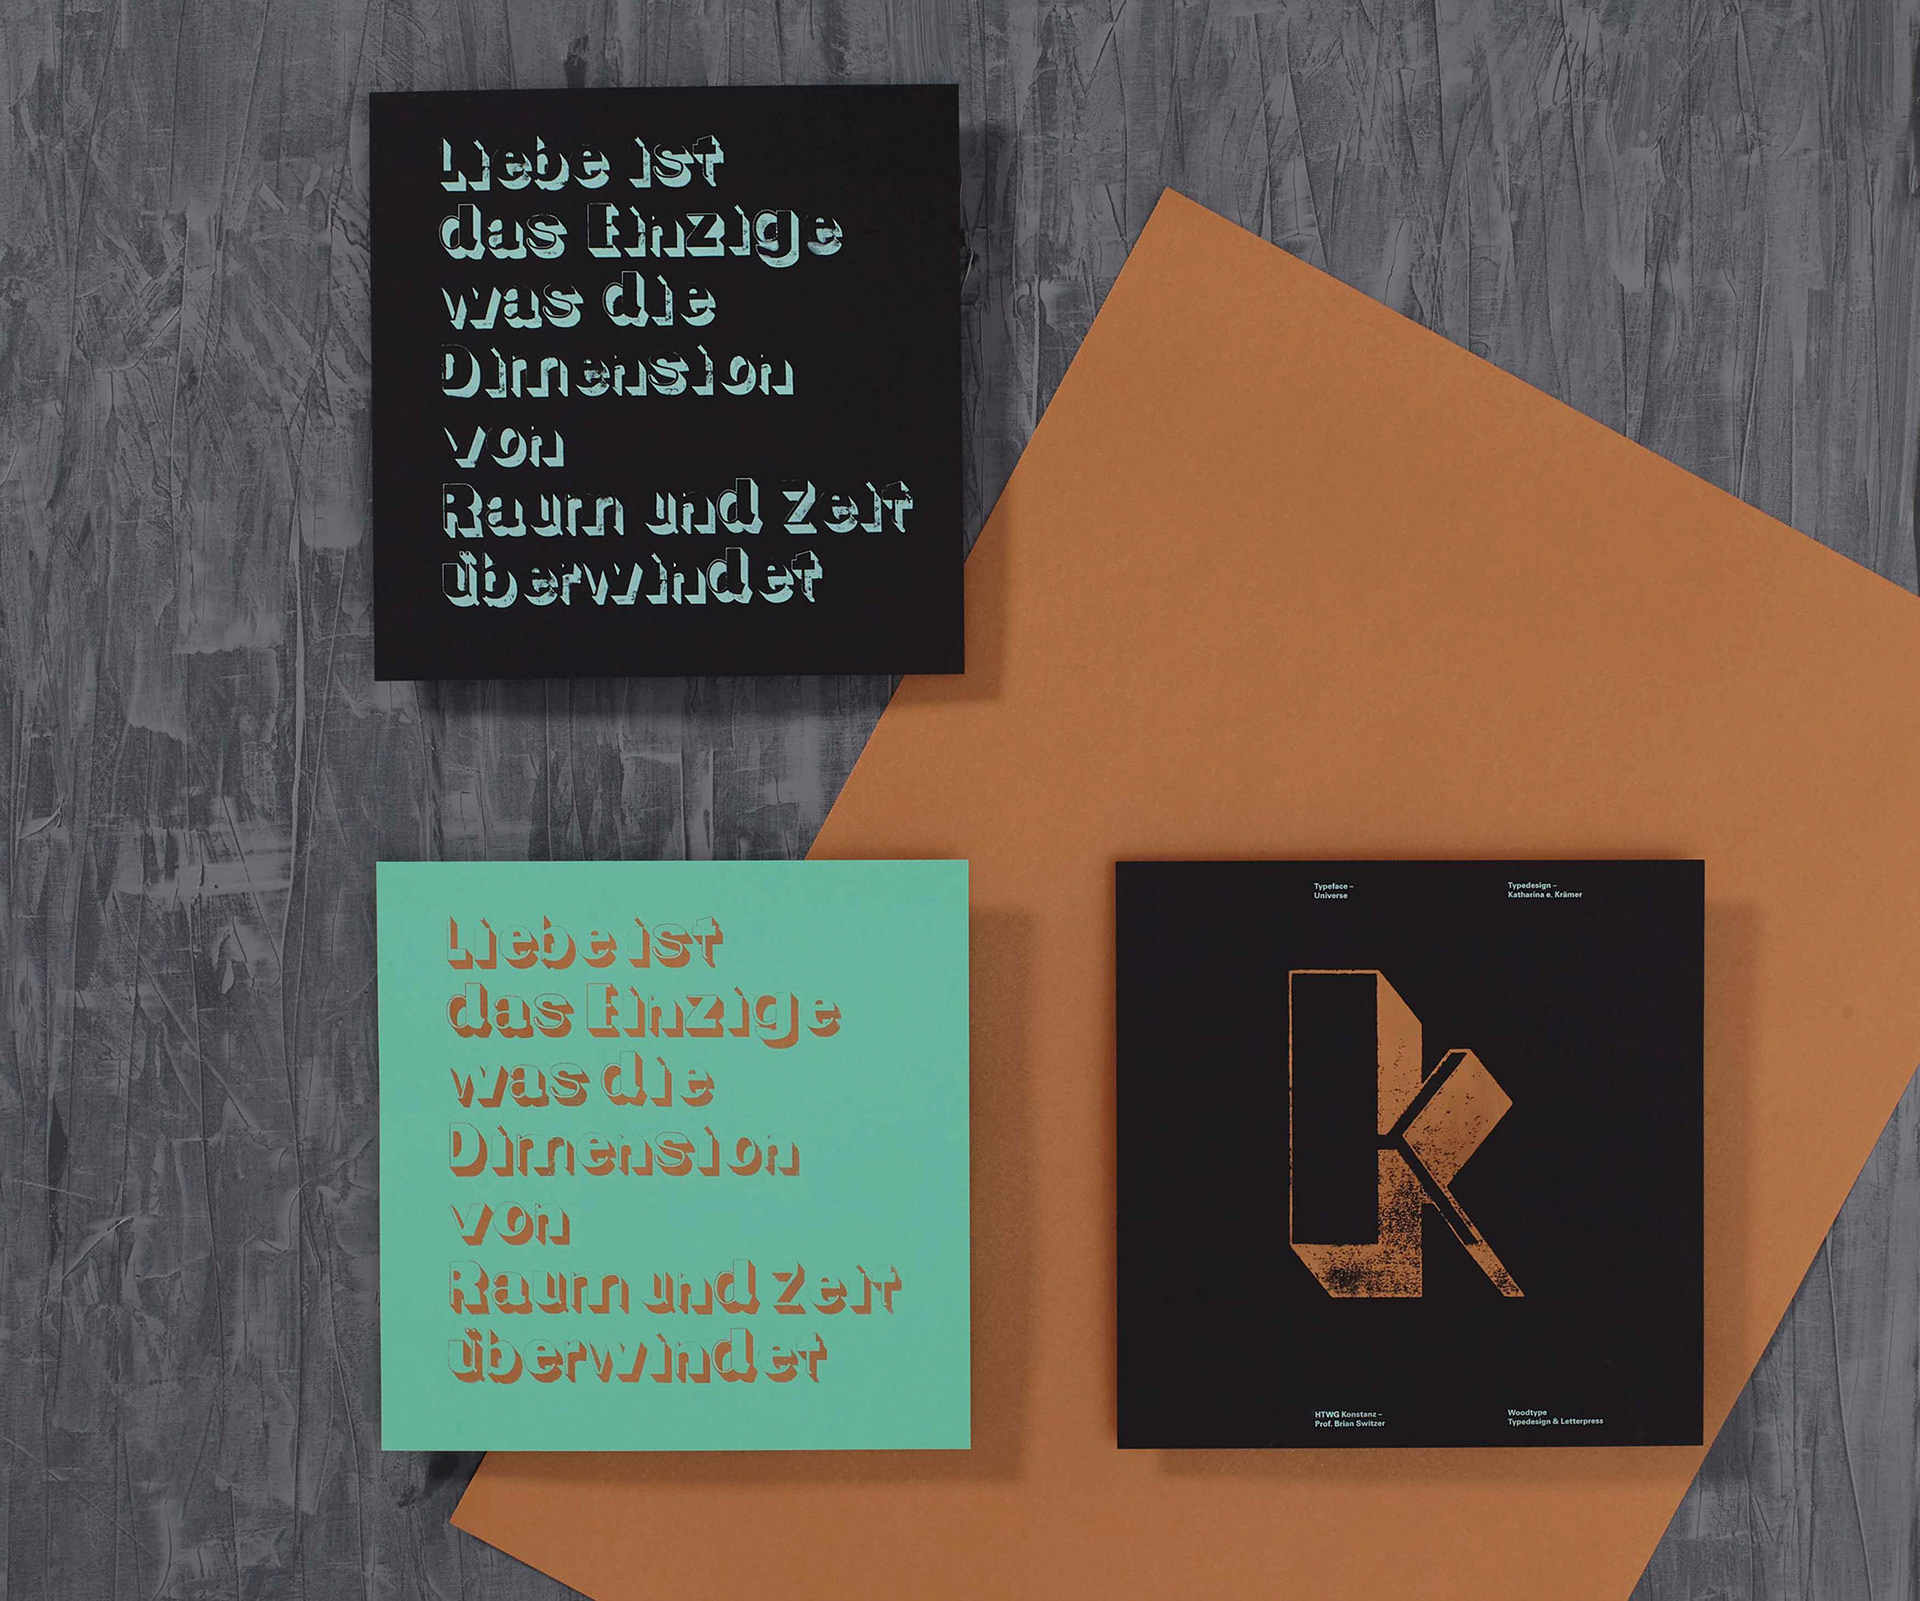 Liebe ist
das Einzige
was die
Dimension
von
Raum und Zeit
überwindet
Liebe ist
das Einzige
was die
Dimension
von
Raum und Zeit
überwindet
Typeface –
Universe
Typedesign –
Katharina e. Krämer
k
HTWG Konstanz –
Prof. Brian Switzer
Woodtype
Typedesign & Letterpress